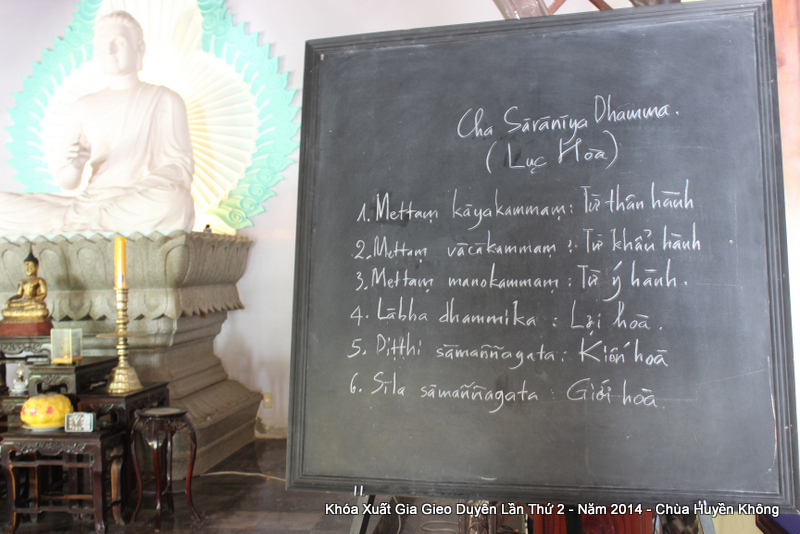 Cha Sārānīya Dhamma.
(Lục Hòa)
1. Mettaṃ kāyakammaṃ: Từ thân hành
2. Mettaṃ vācākammaṃ: Từ khẩu hành
3. Mettaṃ manokammaṃ: Từ ý hành.
4. Lābha dhammika: Lợi hoà.
5. Diṭṭhi sāmaññagata: Kiến hoà
6. Sīla sāmaññagata: Giới hoà.
Khóa Xuất Gia Gieo Duyên Lần Thứ 2 - Năm 2014 - Chùa Huyền Không